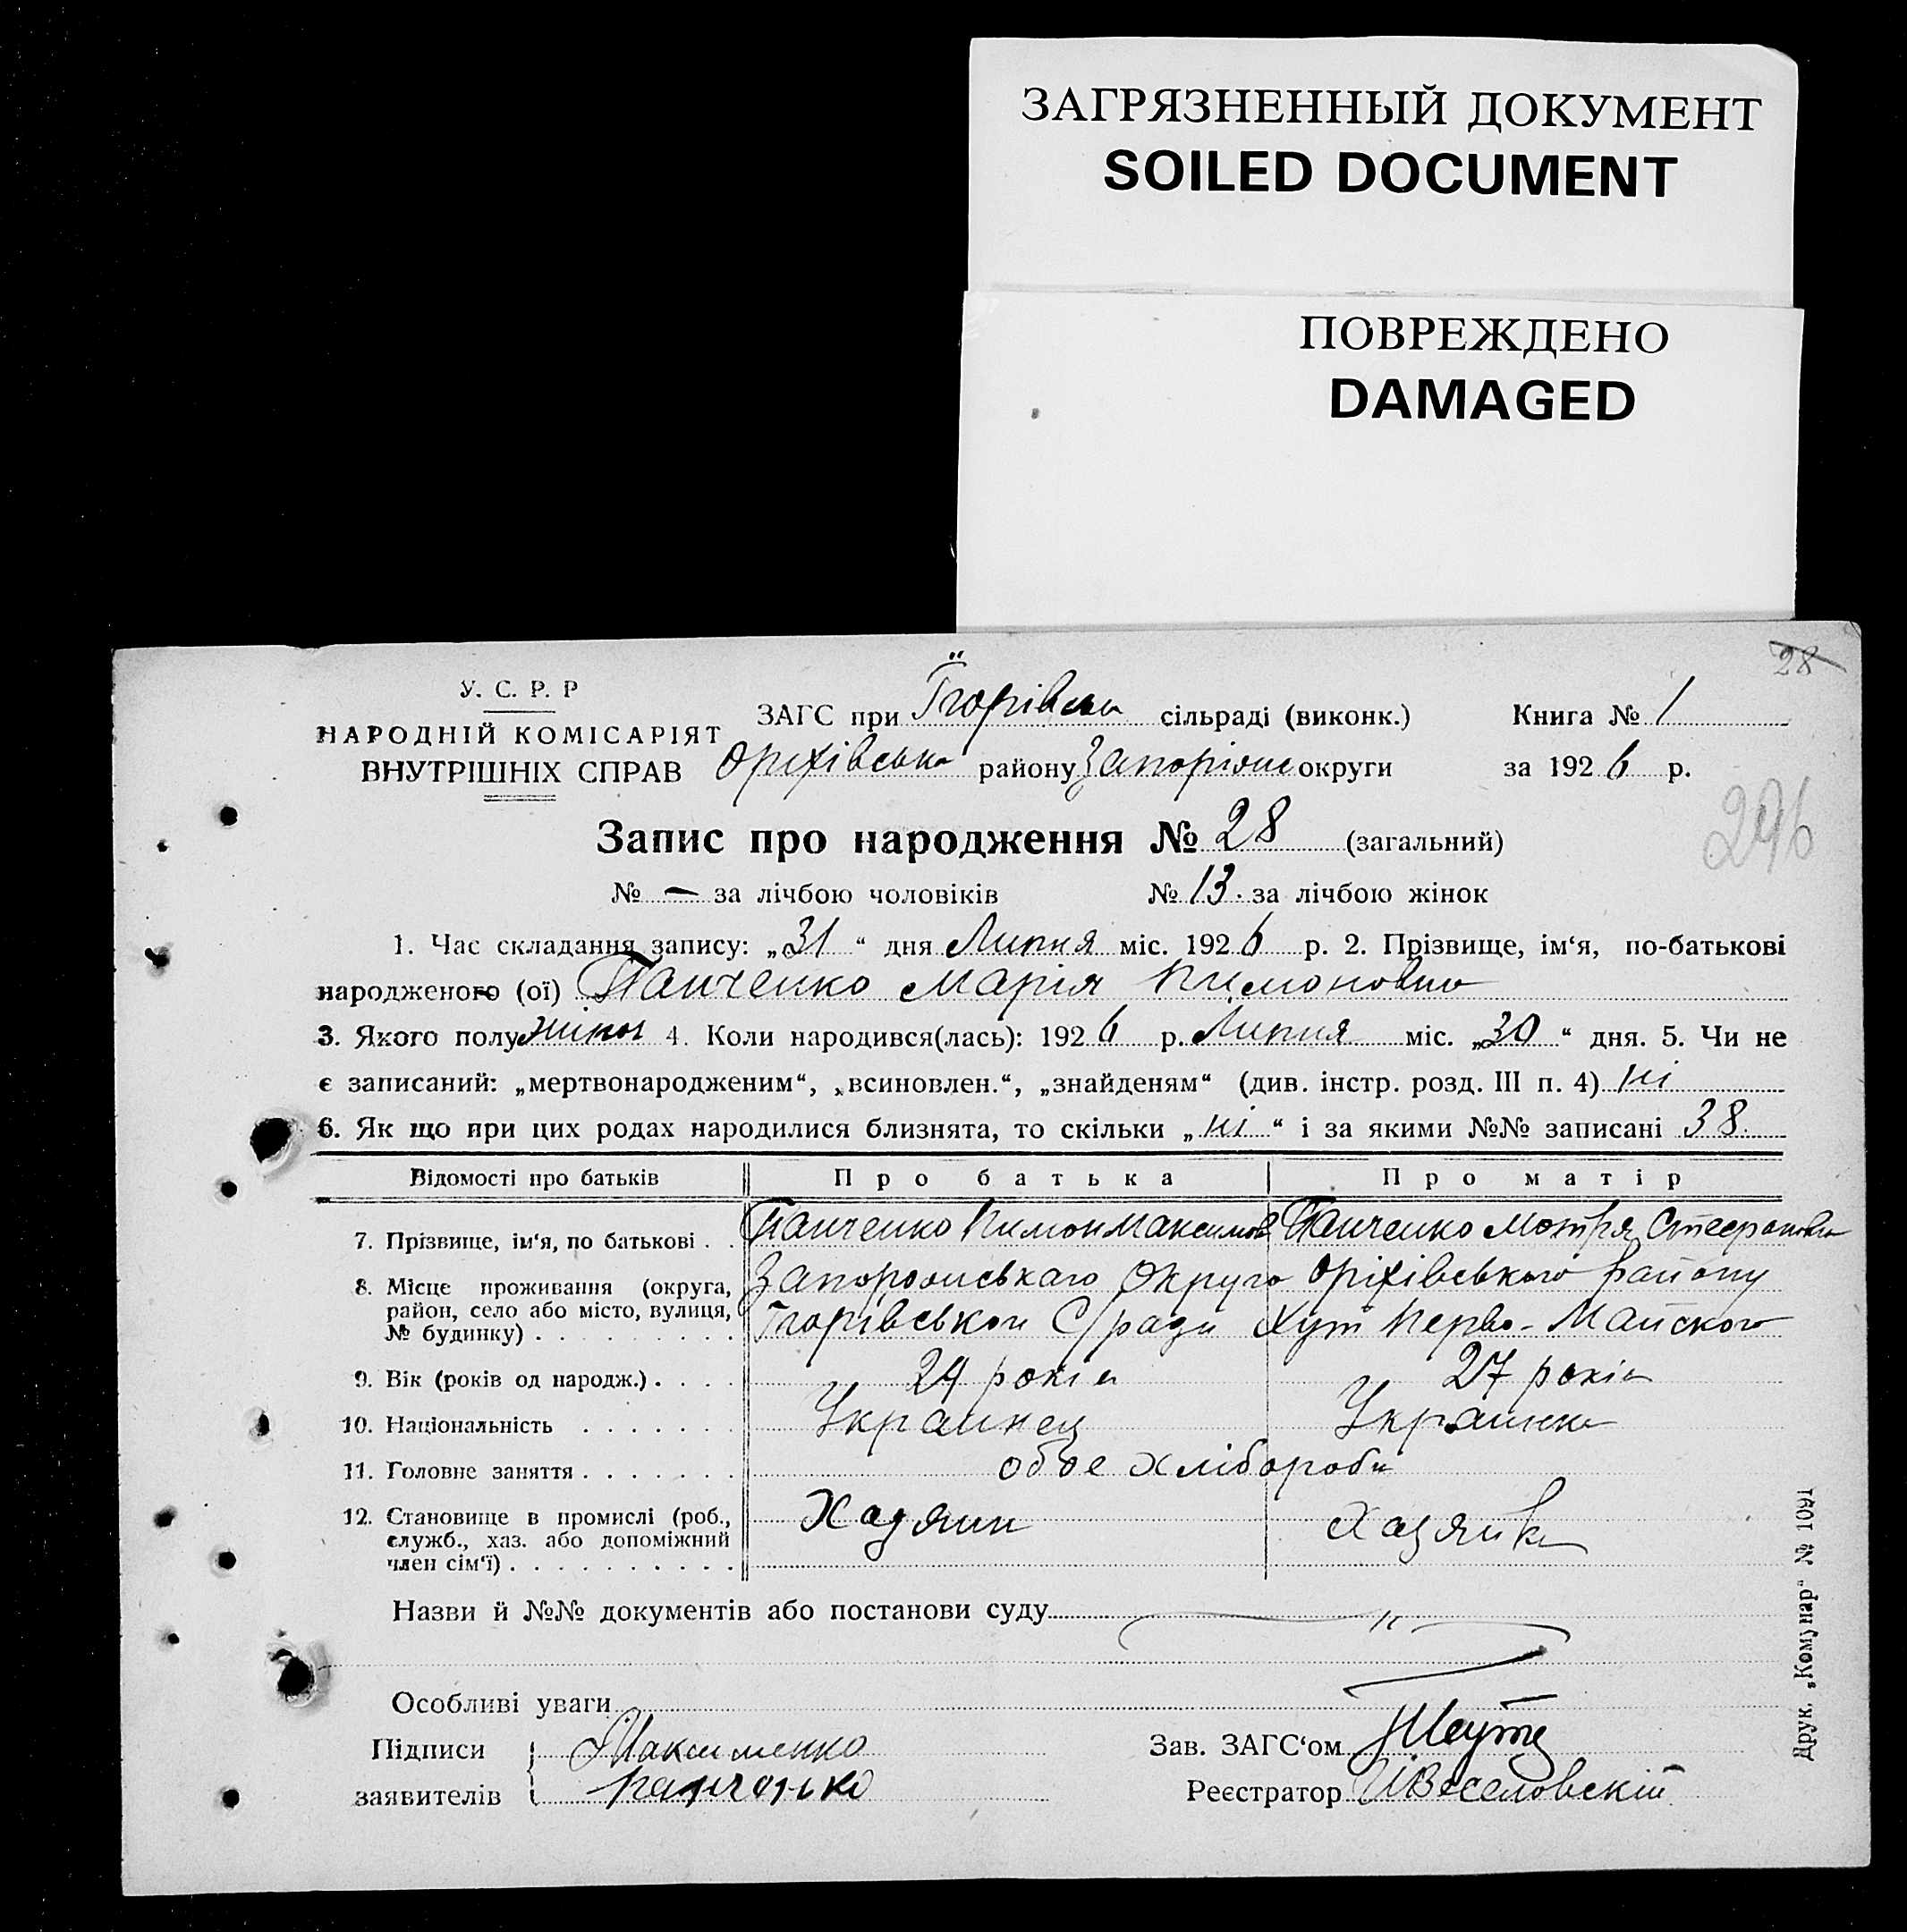 ЗАГРЯЗНЕННЫЙ ДОКУМЕНТ
SOILED DOCUMENT
ПОВРЕЖДЕНО
DAMAGED
28
У. С. Р. Р
НАРОДНІЙ КОМІСАРІЯТ
ВНУТРІШНІХ СПРАВ
ЗАГС при сільраді (виконк.) Книга № 1
Оріхівськ району Запоріжс округи за 1926 р.
296
Запис про народження № 28 (загальний)
№ — за лічбою чоловіків № 13. за лічбою жінок
1. Час складання запису: „31“ дня Липня міс. 1926 р. 2. Прізвище, ім‘я, по-батькові
народженого (ої) Панченко Марія Пимоновна
3. Якого полу жінки 4. Коли народився(лась): 1926 р. Липня міс. „30“ дня. 5. Чи не
є записаний: „мертвонародженим“, „всиновлен.“, „знайденям“ (див. інстр. розд. III п. 4) ні
6. Як що при цих родах народилися близнята, то скільки „ні“ і за якими №№ записані 38.
Відомості про батьків Про батька Про матір
7. Прізвище, ім‘я, по батькові . . Панченко Пимон Максимов Панченко Мотря Стефановна
8. Місце проживання (округа, район, село або місто, вулиця, № будинку) . . . . . . . . . Запорожськаго Округа Оріхівського району
С/ради Хут Перво-Майского
9. Вік (років од народж.) . . . . 29 років 27 років
10. Національність . . . . . . . Украинец Украинка
11. Головне заняття . . . . . . . обое хлібороби
12. Становище в промислі (роб., служб., хаз. або допоміжний член сім‘ї) . . . . . . . . . . Хазяин Хазяйка
Назви й №№ документів або постанови суду
Особливі уваги
Підписи заявителів Максименко
Панченко
Зав. ЗАГС‘ом
Реєстратор ИВеселовскій
Друк. „Комунар“ № 1091